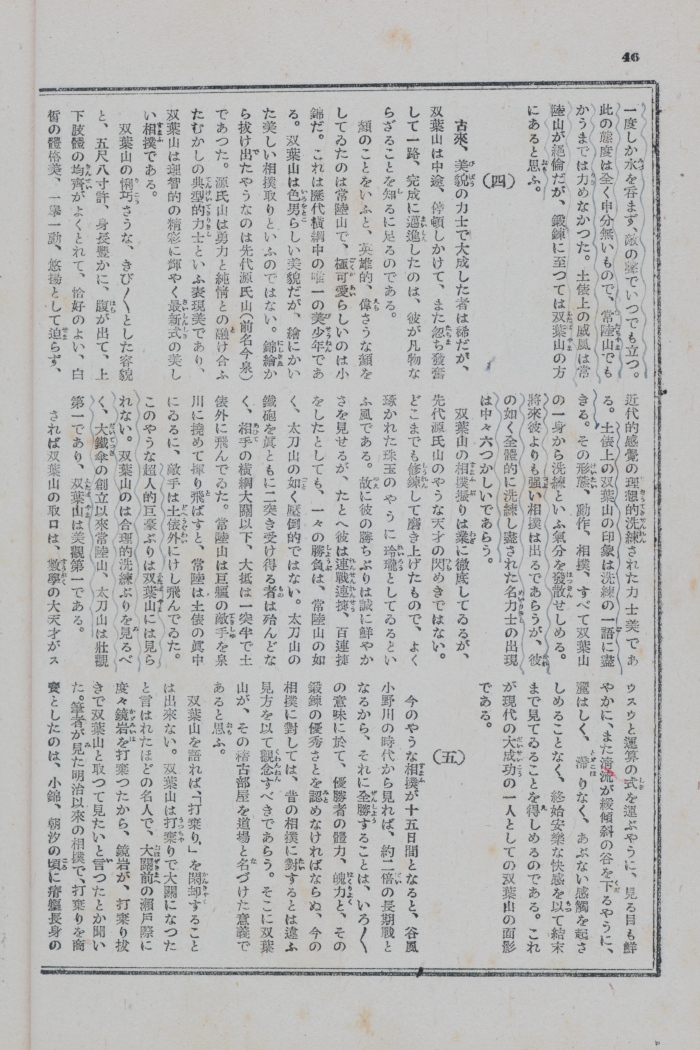 46
一度しか水を呑まず、敵の聲でいつでも立つ。
此の態度は全く申分無いもので、常陸山でも
かうまでは力めなかつた。土俵上の威風は常
陸山が絶倫だが、鍛錬に至つては双葉山の方
にあると思ふ。
(四)
古來、美貌の力士で大成した者は稀だが、
双葉山は中途、停頓しかけて、また忽ち發奮
して一路、完成に邁進したのは、彼が凡物な
らざることを知るに足るのである。
顏のことをいふと、英雄的、偉さうな顏を
してゐたのは常陸山で、極可愛らしいのは小
錦だ。これは歴代横綱中の唯一の美少年であ
る。双葉山は色男らしい美貌だが、繪にかい
た美しい相撲取りといふのではない。錦繪か
ら拔け出たやうなのは先代源氏山(前名今泉)
であつた。源氏山は勇力と純情との融け合ふ
たむかしの典型的力士といふ表現美であり、
双葉山は理智的の精彩に輝やく最新式の美し
い相撲である。
双葉山の悧巧さうな、きび〱とした容貌
と、五尺八寸許、身長豐かに、腹が出て、上
下肢體の均齊がよくとれて、恰好のよい、白
皙の體格美、一擧一動、悠揚として迫らず、
近代的感覺の理想的洗練された力士美であ
る。土俵上の双葉山の印象は洗練の一語に盡
きる。その形態、動作、相撲、すべて双葉山
の一身から洗練といふ氣分を發散せしめる。
將來彼よりも强い相撲は出るであらうが、彼
の如く全體的に洗練し盡された名力士の出現
は中々六つかしいであらう。
双葉山の相撲振りは業に徹底してゐるが、
先代源氏山のやうな天才の閃めきではない。
どこまでも修練して磨き上げたもので、よく
琢かれた珠玉のやうに玲瓏としてゐるとい
ふ風である。故に彼の勝ちぶりは誠に鮮やか
さを見せるが、たとへ彼は連戰連捷、百連捷
をしたとしても、一々の勝負は、常陸山の如
く、太刀山の如く壓倒的ではない。太刀山の
鐵砲を眞ともに二突き受け得る者は殆んどな
く、相手の横綱大關以下、大抵は一突半で土
俵外に飛んでゐた。常陸山は巨軀の敵手を泉
川に撓めて揮り飛ばすと、常陸は土俵の眞中
にゐるに、敵手は土俵外にけし飛んでゐた。
このやうな超人的巨豪ぶりは双葉山には見ら
れない。双葉山のは合理的洗練ぶりを見るべ
く、大鐵傘の創立以來常陸山、太刀山は壯觀
第一であり、双葉山は美觀第一である。
されば双葉山の取口は、數學の大天才がス
ウスウと運算の式を運ぶやうに、見る目も鮮
やかに、また清流が緩傾斜の谷を下るやうに、
麗はしく、滯りなく、あぶない感觸を起さ
しめることなく、終始安樂な快感を以て結末
まで見てゐることを得しめるのである。これ
が現代の大成功の一人としての双葉山の面影
である。
(五)
今のやうな相撲が十五日間となると、谷風
小野川の時代から見れば、約二倍の長期戰と
なるから、それに全勝することは、いろ〱
の意味に於て、優勝者の體力、魄力と、その
鍛錬の優秀さとを認めなければならぬ、今の
相撲に對しては、昔の相撲に對するとは違ふ
見方を以て觀念すべきであらう。そこに双葉
山が、その稽古部屋を道場と名づけた意義で
あると思ふ。
双葉山を語れば、「打棄り」を閑却すること
は出來ない。双葉山は打棄りで大關になつた
と言はれたほどの名人で、大關前の瀨戸際に
度々鏡岩を打棄つたから、鏡岩が、打棄り拔
きで双葉山と取つて見たいと言つたとか聞い
た。筆者が見た明治以來の相撲で、打棄りを商
賣としたのは、小錦、朝汐の頃に瘠軀長身の